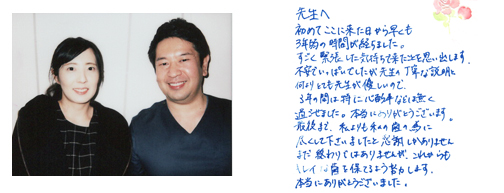 先生へ
初めてここに来た日から早くも
3年弱の時間が経ちました。
すごく緊張した気持ちで来た事を思い出します。
不安でいっぱいでしたが先生の丁寧な説明と
何よりとても先生が優しいので、
3年の間は特に心配事などは無く
過ごせました。本当にありがとうございます。
最後まで、私よりも私の歯の為に
尽くして下さいましたこと感謝しかありません
まだ終わりではありませんが、これからも
キレイな歯を保てるよう努力します。
本当にありがとうございました。